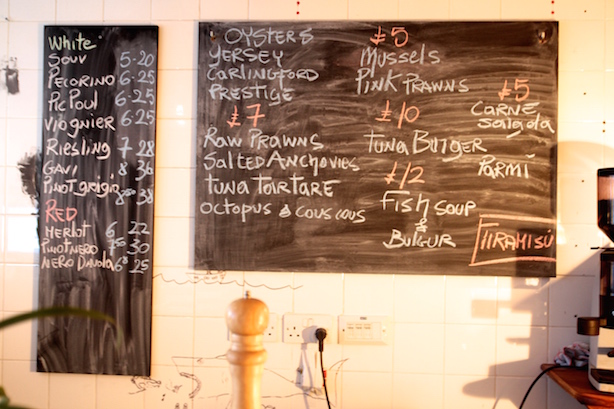 White
Souv 5-20
Pecorino 6-25
Pic Poul 6-25
Viognier 6-25
Riesling 7-28
Gavi 8 36
Pinot grigio 8 38
RED
Merlot 6 22
Pinot nero 30
Nero D'avola 6 25
OYSTERS
YERSEY
CARLingFORD
PRESTigE
£7
RAW PRAWNS
SALTED ANCHOVIES
TUNA TARTARE
OCTOPUS & COUSCOUS
£5
MUSSELS
PINK PRAWNS
£10
TUNA BURGER
£12
FISH SOUP
&
BULGUR
£5
CARNE
Salada
PARMI
TIRAMISÚ